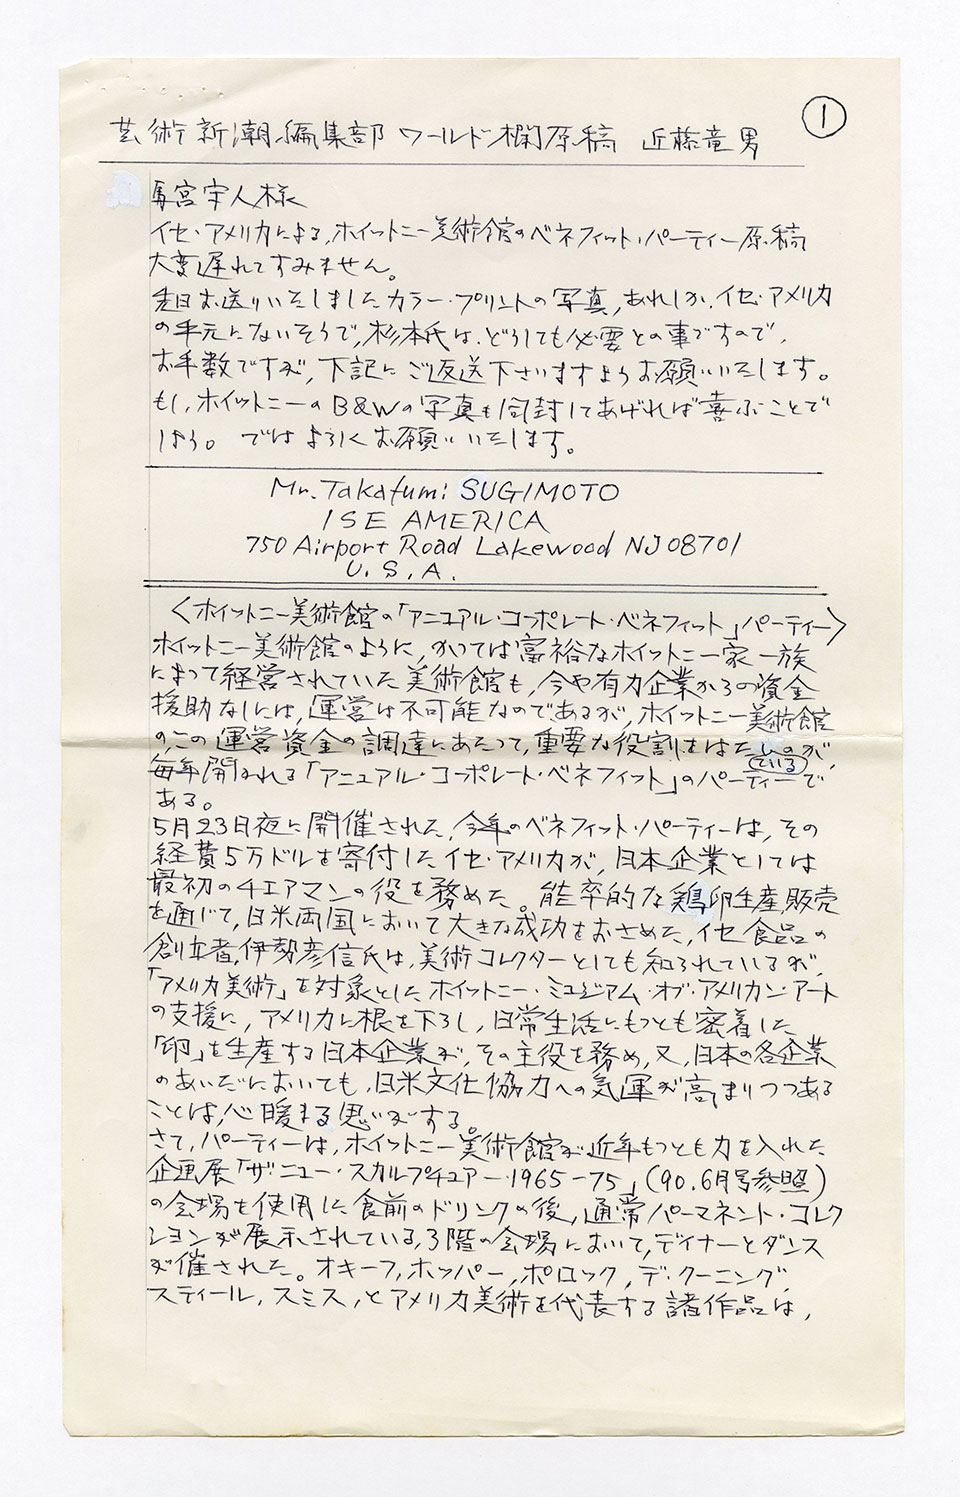 ①
芸術新潮編集部 ワールド欄原稿 近藤竜男
馬宮宇人様
イセ・アメリカによる、ホイットニー美術館のベネフィット・パーティー原稿
大変遅れてすみません。
先日お送りいたしましたカラー・プリントの写真、あれしか、イセ・アメリカ
の手元にないそうで、杉本氏は、どうしても必要との事ですので、
お手数ですが、下記にご返送下さいますようお願いいたします。
もし、ホイットニーのB&Wの写真も同封してあげれば喜ぶことで
しょう。ではよろしくお願いいたします。
Mr. Takafumi SUGIMOTO
ISE AMERICA
750 Airport Road Lakewood NJ 08701
U.S.A.
〈ホイットニー美術館の「アニュアル・コーポレート・ベネフィット」パーティー〉
ホイットニー美術館のように、かつては富裕なホイットニー家一族
によって経営されていた美術館も、今や有力企業からの資金
援助なしには、運営は不可能なのであるが、ホイットニー美術館
の、この運営資金の調達にあたって、重要な役割をはたしているのが、
毎年開かれる「アニュアル・コーポレート・ベネフィット」のパーティーで
ある。
5月23日夜に開催された、今年のベネフィット・パーティーは、その
経費5万ドルを寄付したイセ・アメリカが、日本企業としては
最初のチェアマンの役を務めた。能率的な鶏卵生産、販売
を通じて、日米両国において大きな成功をおさめた、イセ食品の
創立者、伊勢彦信氏は、美術コレクターとしても知られているが、
「アメリカ美術」を対象としたホイットニー・ミュジアム・オブ・アメリカン・アート
の支援に、アメリカに根を下ろし、日常生活にもっとも密着した
「卵」を生産する日本企業が、その主役を務め、又、日本の各企業
のあいだにおいても、日米文化協力への気運が高まりつつある
ことは、心暖まる思いがする。
さて、パーティーは、ホイットニー美術館が近年もっとも力を入れた
企画展「ザ・ニュー・スカルプチュアー・1965-75」(90.6月号参照)
の会場を使用した食前のドリンクの後、通常パーマネント・コレク
ションが展示されている、3階の会場において、デイナーとダンス
が催された。オキーフ、ホッパー、ポロック、デ・クーニング、
スティール、スミス、とアメリカ美術を代表する諸作品は、